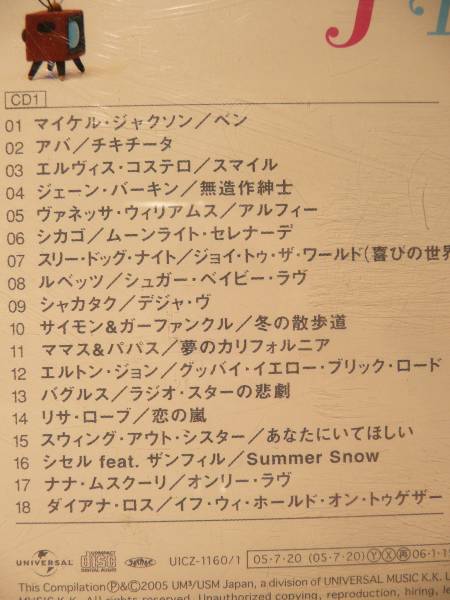 CD1
01 マイケル・ジャクソン／ベン
02 アバ／チキチータ
03 エルヴィス・コステロ／スマイル
04 ジェーン・バーキン／無造作紳士
05 ヴァネッサ・ウィリアムス／アルフィー
06 シカゴ／ムーンライト・セレナーデ
07 スリー・ドッグ・ナイト／ジョイ・トゥ・ザ・ワールド(喜びの世界
08 ルベッツ／シュガー・ベイビー・ラヴ
09 シャカタク／デジャ・ヴ
10 サイモン&ガーファンクル／冬の散歩道
11 ママス&パパス／夢のカリフォルニア
12 エルトン・ジョン／グッバイ・イエロー・ブリック・ロード
13 バグルス／ラジオ・スターの悲劇
14 リサ・ローブ／恋の嵐
15 スウィング・アウト・シスター／あなたにいてほしい
16 シセル feat. ザンフィル／Summer Snow
17 ナナ・ムスクーリ／オンリー・ラヴ
18 ダイアナ・ロス／イフ・ウィ・ホールド・オン・トゥゲザー
UNIVERSAL COMPACT disc DIGITAL AUDIO UICZ-1160/1 05・7・20 (05・7・20) Ⓨ Ⓧ 再 06・1・1
This Compilation Ⓟ&©2005 UM³/USM Japan, a division of UNIVERSAL MUSIC K.K.
MUSIC K.K. All Rights Reserved. Unauthorized copying, reproduction, hiring, le